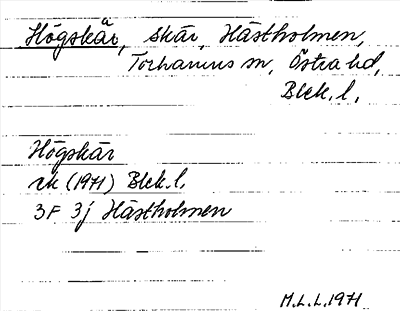 Högskär, skär, Hästholmen,
Torhamns sn, Östra hd,
Blek. l.
Högskär
rk (1971) Blek. l.
3F 3j Hästholmen
M.L.L. 1971